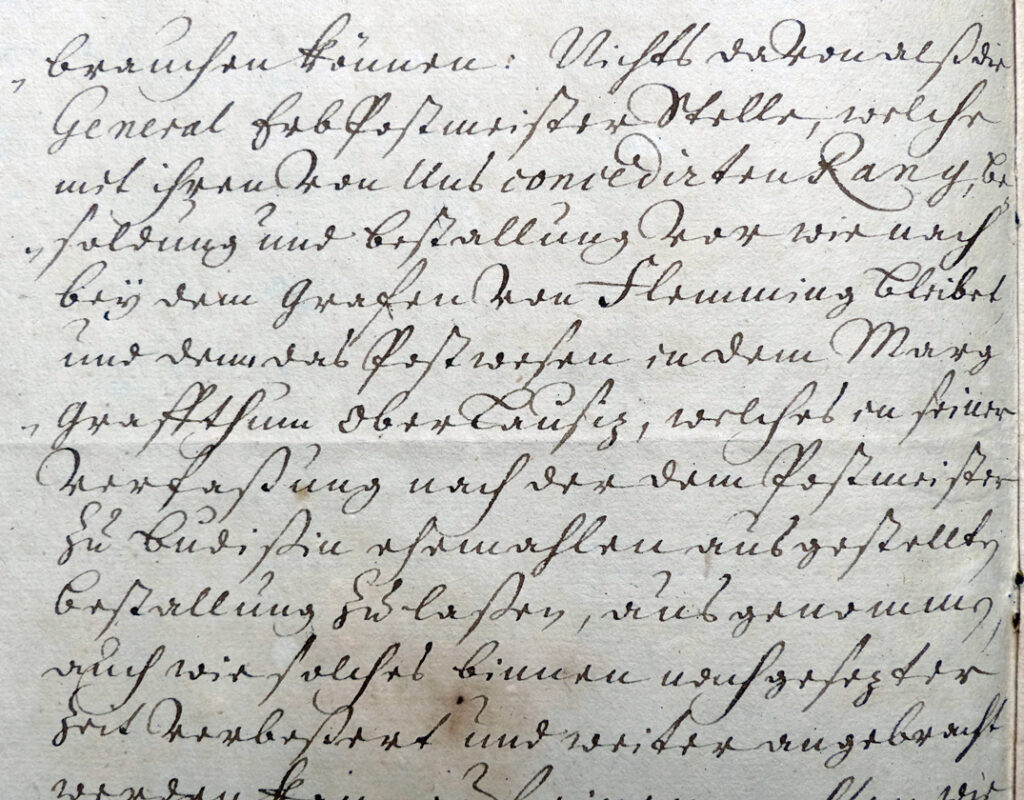 brauchen können: Nichts davon alß die
General ErbPostmeister Stelle, welche
mit ihren von Uns concedirten Rang, be
soldung und bestallung vor wie nach
beÿ dem Grafen von Flemming bleibet,
und denn das Postwesen in dem Marg
Graffthum OberLausiz, welches in seiner
verfaßung nach der dem Postmeister
zu Budißin ehemahlen ausgestellten
bestallung zu laßen, ausgenommen,
auch wie solches binnen nachgesezter
Zeit verbeßert und weiter angebracht
werden kan,